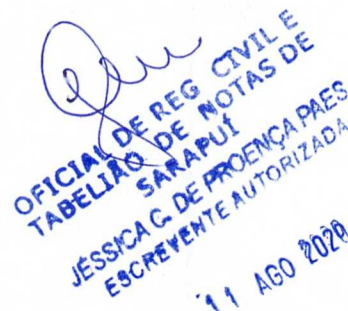 OFICIAL DE REG CIVIL E
TABELIÃO DE NOTAS DE
SARAPUÍ
JÉSSICA C. DE PROENÇA PAES
ESCREVENTE AUTORIZADA
11 AGO 2020